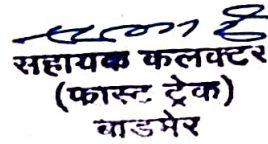 सहायक कलक्टर
(फास्ट ट्रेक)
बाडमेर